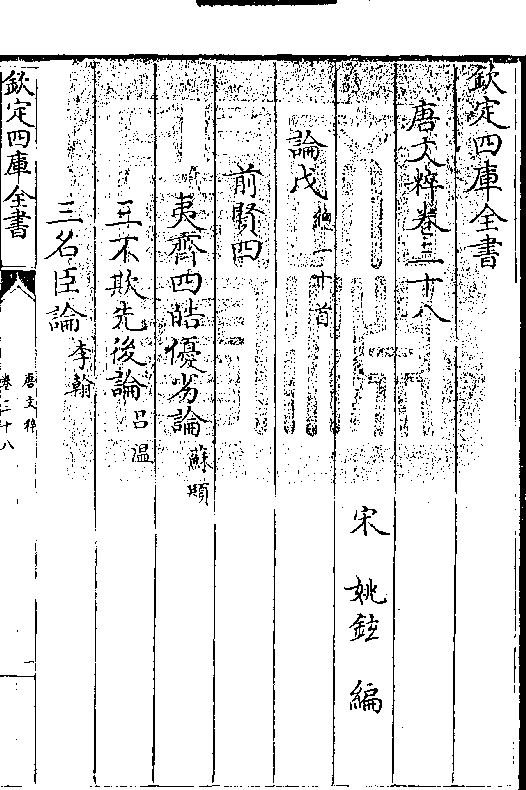 欽定四庫全書
唐文粹卷三十八
宋 姚鉉 編
論戊總一十首
前賢四
夷齊四皓優劣論蘇頲
三不欺先後論呂温
三名臣論李翰
欽定四庫全書
唐文粹
卷三十八
一